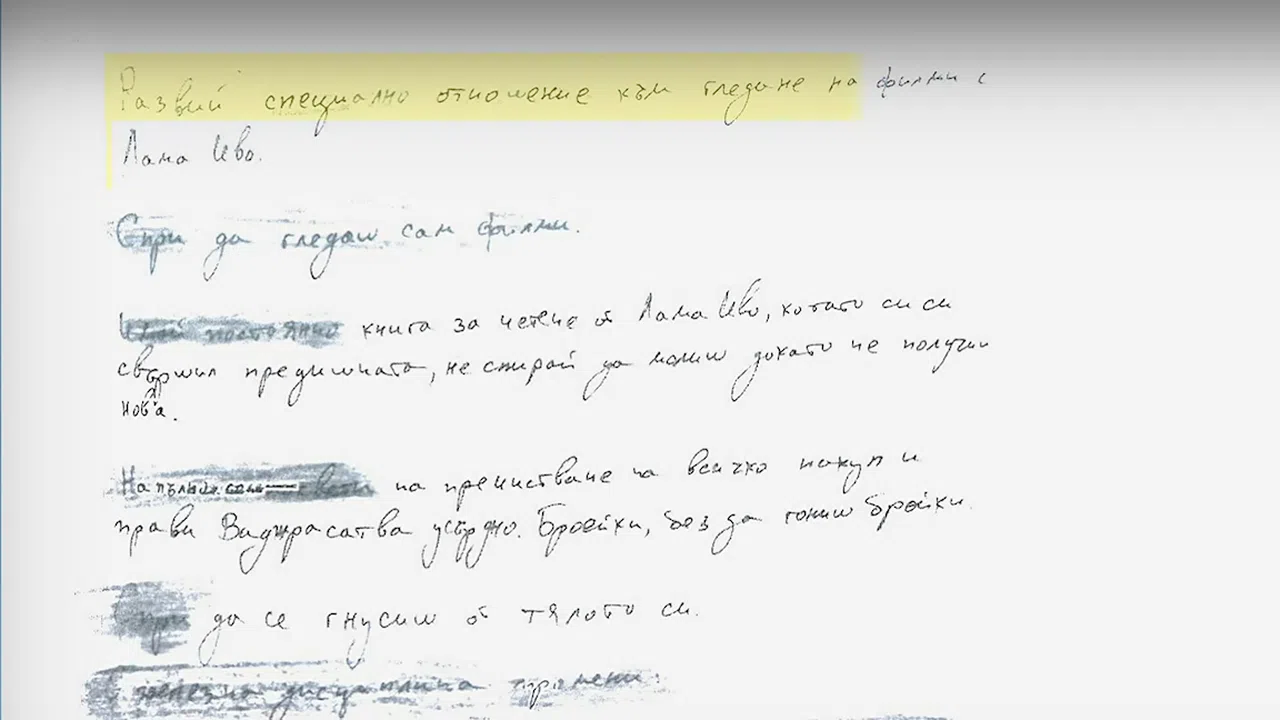 Развий специално отношение към гледане на филми с
Лама Иво.
Спри да гледаш сам филми.
Имай постоянно книга за четене от Лама Иво, когато си си
свършил предишната, не спирай да молиш докато не получиш
нова.
на пречистване на всичко накуп и
прави Ваджрасатва усърдно. Бройки, без да гониш бройки.
Спри да се гнусиш от тялото си.
железна дисциплина промени.